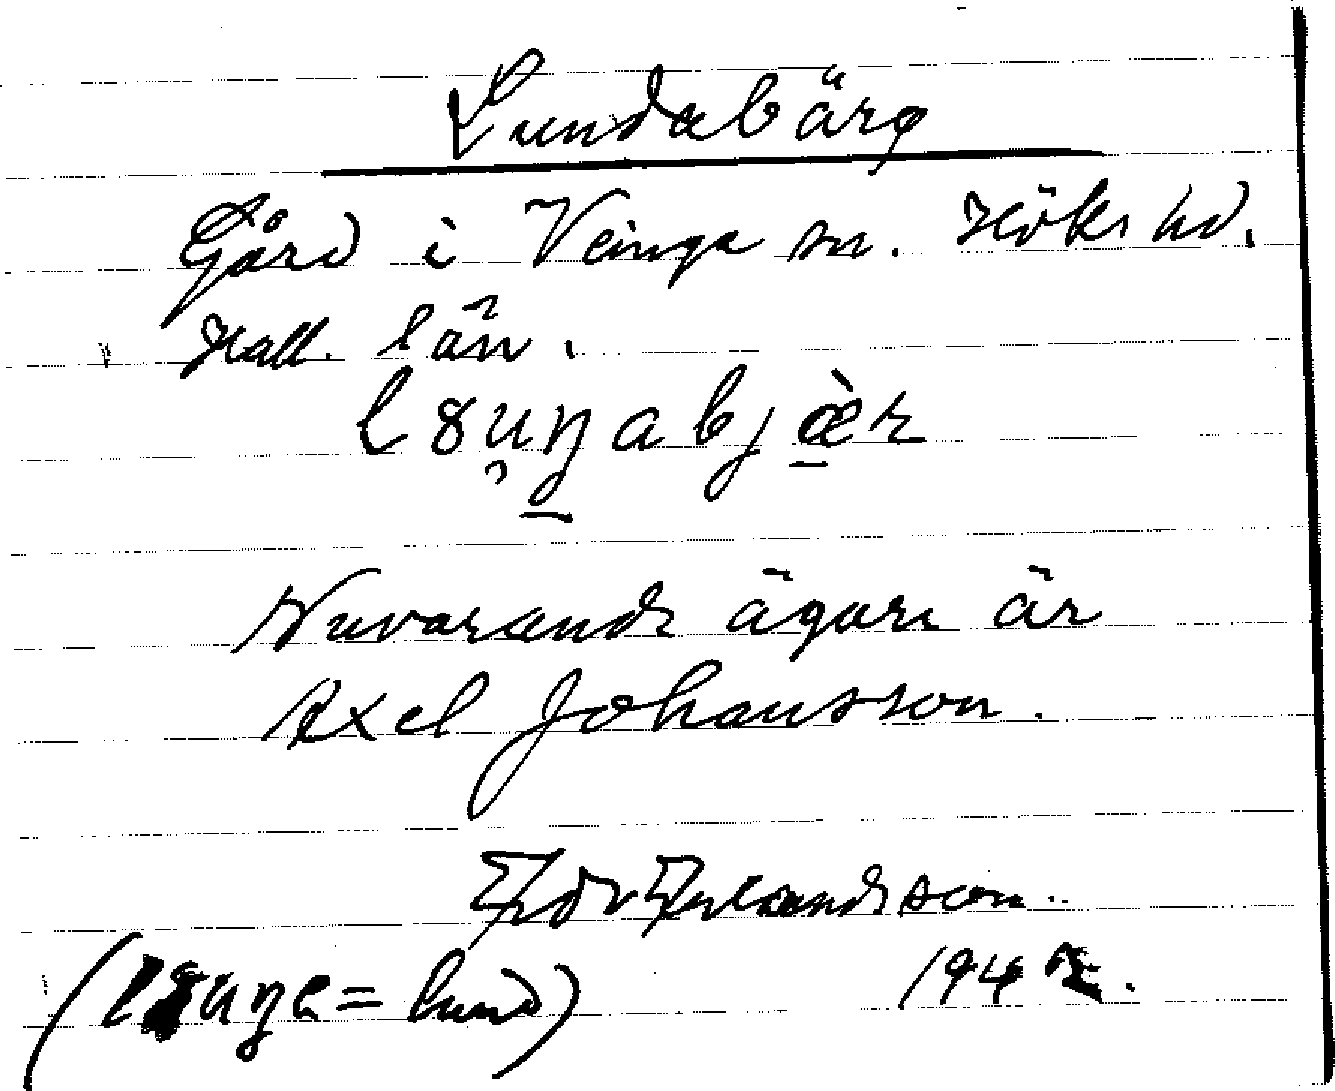 Lundabärg
Gård i Veinge sn. Höks hd.
Hall. län.
l8u̯ŋabjæ̀r
Nuvarande ägare är
Axel Johansson.
Erlandsson.
(l8uŋe = lund) 194